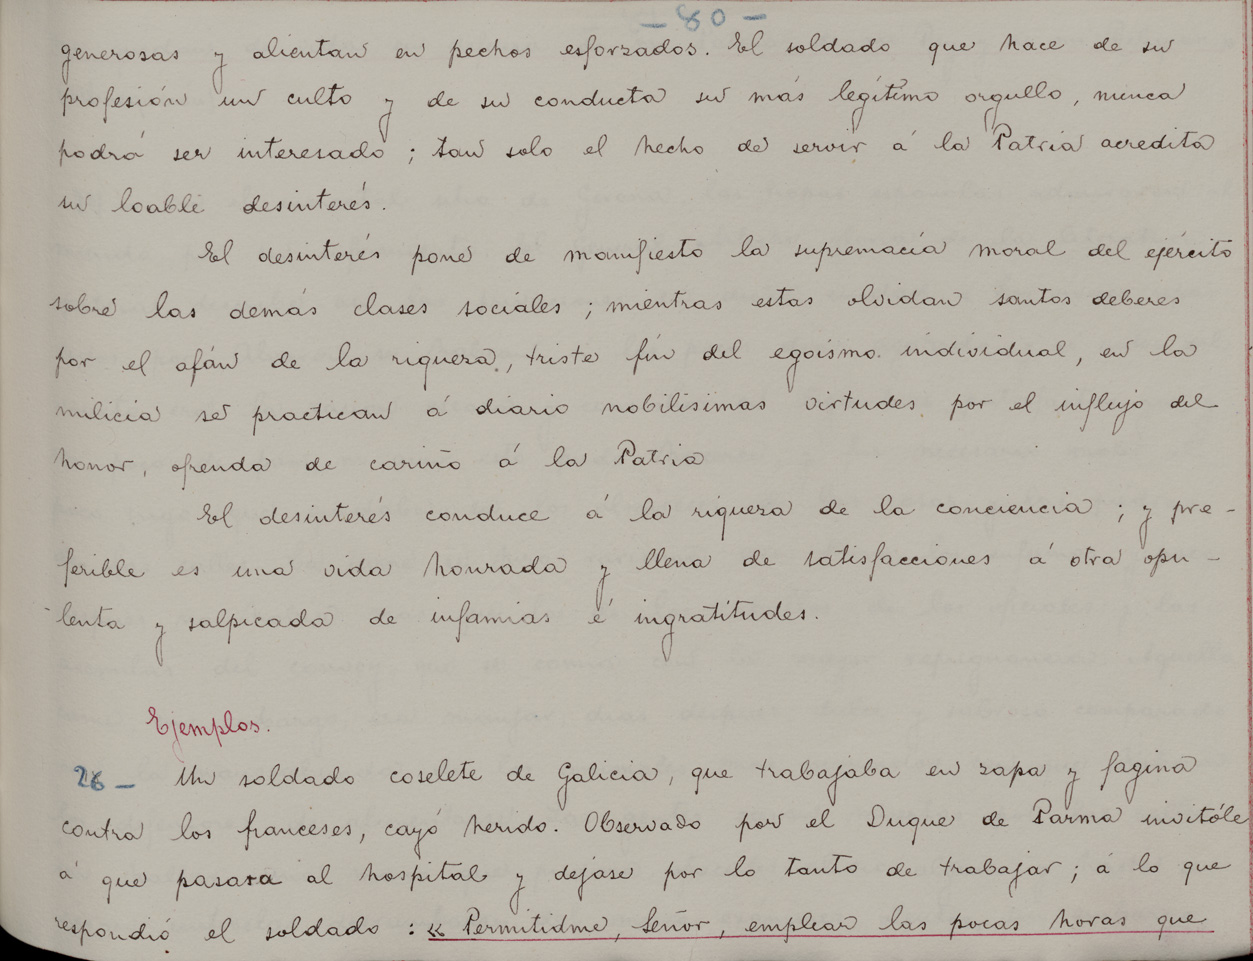 - 80 -
generosas y alientan en pechos esforzados. El soldado que hace de su
profesión un culto y de su conducta su más legítimo orgullo, nunca
podrá ser interesado; tan solo el hecho de servir á la Patria acredita
su loable desinterés.
El desinterés pone de manifiesto la supremacía moral del ejército
sobre las demás clases sociales; mientras estas olvidan santos deberes
por el afán de la riqueza, triste fín del egoísmo individual, en la
milicia se practican á diario nobilisimas virtudes por el influjo del
honor, ofrenda de cariño á la Patria
El desinterés conduce á la riqueza de la conciencia; y pre-
ferible es una vida honrada y llena de satisfacciones á otra opu-
lenta y salpicada de infamias é ingratitudes.
Ejemplos.
26 - Un soldado coselete de Galicia, que trabajaba en zapa y fagina
contra los franceses, cayó herido. Observado por el Duque de Parma invitóle
á que pasara al hospital y dejase por lo tanto de trabajar; á lo que
respondió el soldado: « Permitidme, Señor, emplear las pocas horas que